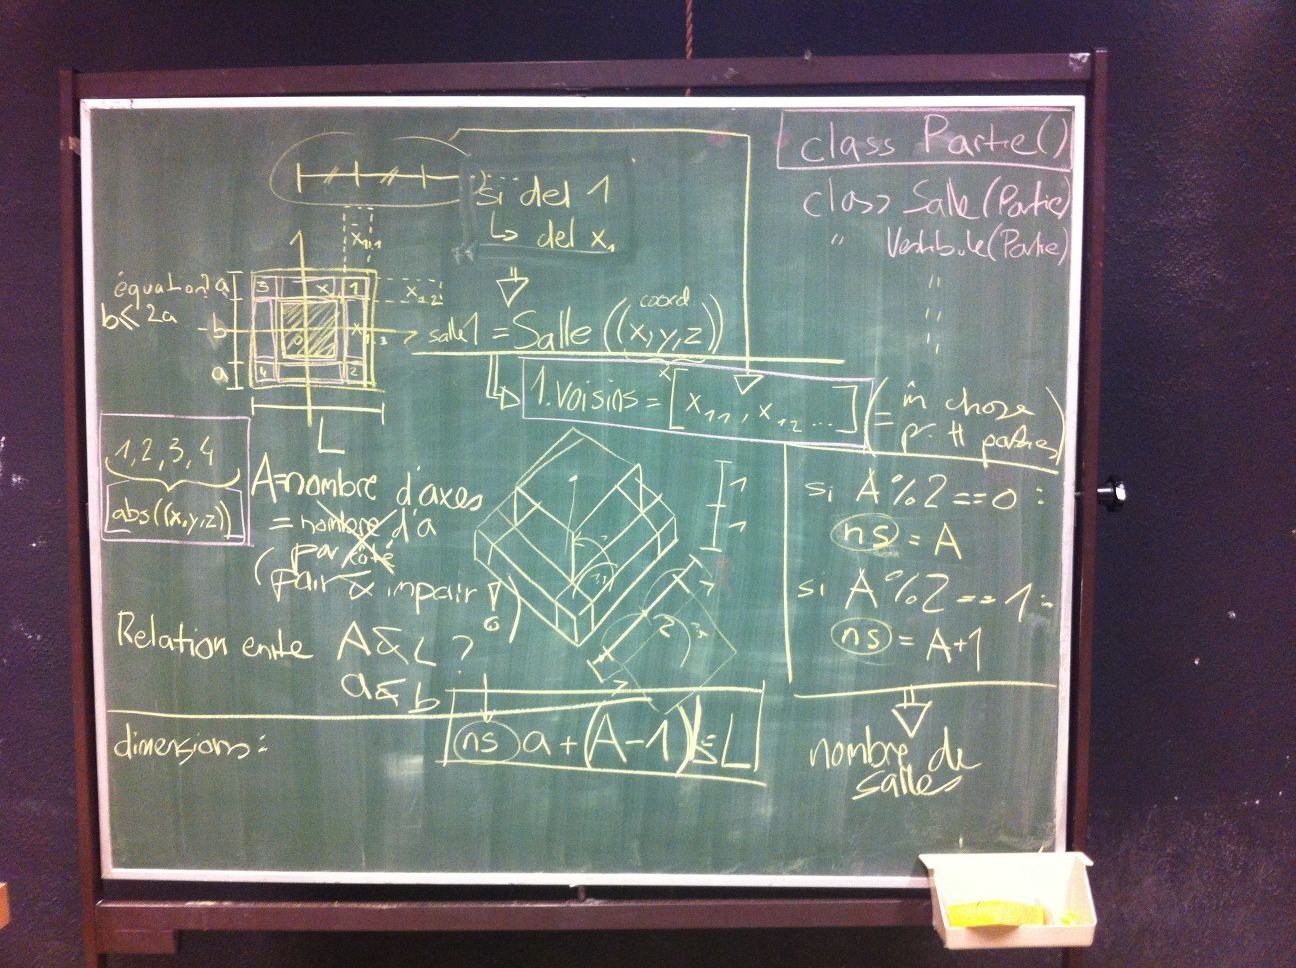 class Partie()
class Salle(Partie)
" Vestibule(Partie)
"
"
"
si del 1
↳ del x₁
1
x₁.₁
équation?
b ≤ 2a
a
b
a
3
x
1
x₁.₂
4
2
L
salle1 = Salle((x,y,z))
coord
1.voisins = [x₁.₁, x₁.₂ ...]
(= m̂ chose
pr. tt parties)
1,2,3,4
abs((x,y,z))
A=nombre d'axes
= nombre d'a
par côté
(pair & impair)
1
1
2
si A%2==0:
ns = A
si A%2==1:
ns = A+1
nombre de
salles
Relation entre A&L ?
a&b
dimensions:
ns a+(A-1)b=L